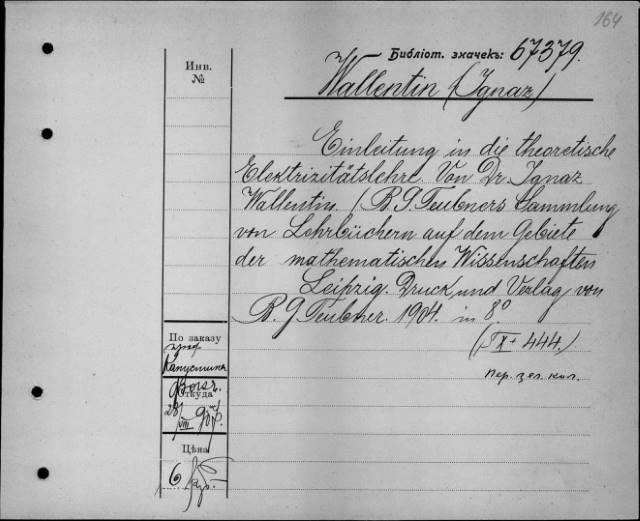 164
Библіот. значекъ: 67379.
Инв.
№
Wallentin (Ignaz)
Einleitung in die theoretische
Elektrizitätslehre. Von Dr. Ignaz
Wallentin. (B. G. Teubners Sammlung
von Lehrbüchern auf dem Gebiete
der mathematischen Wissenschaften
Leipzig. Druck und Verlag von
B. G. Teubner. 1904. in 8°
(X + 444.)
Пер. зел. кол.
По заказу
проф.
Капустина
Откуда
28/VIII 907
Цѣна
6